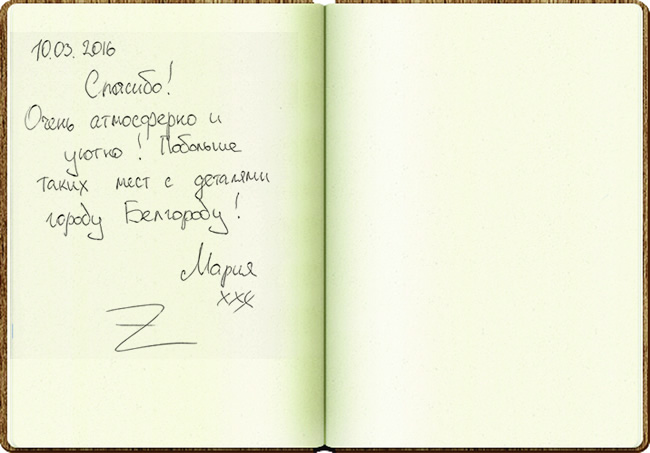 10.03.2016
Спасибо!
Очень атмосферно и
уютно! Побольше
таких мест с деталями
городу Белгороду!
Мария
xxx
Z